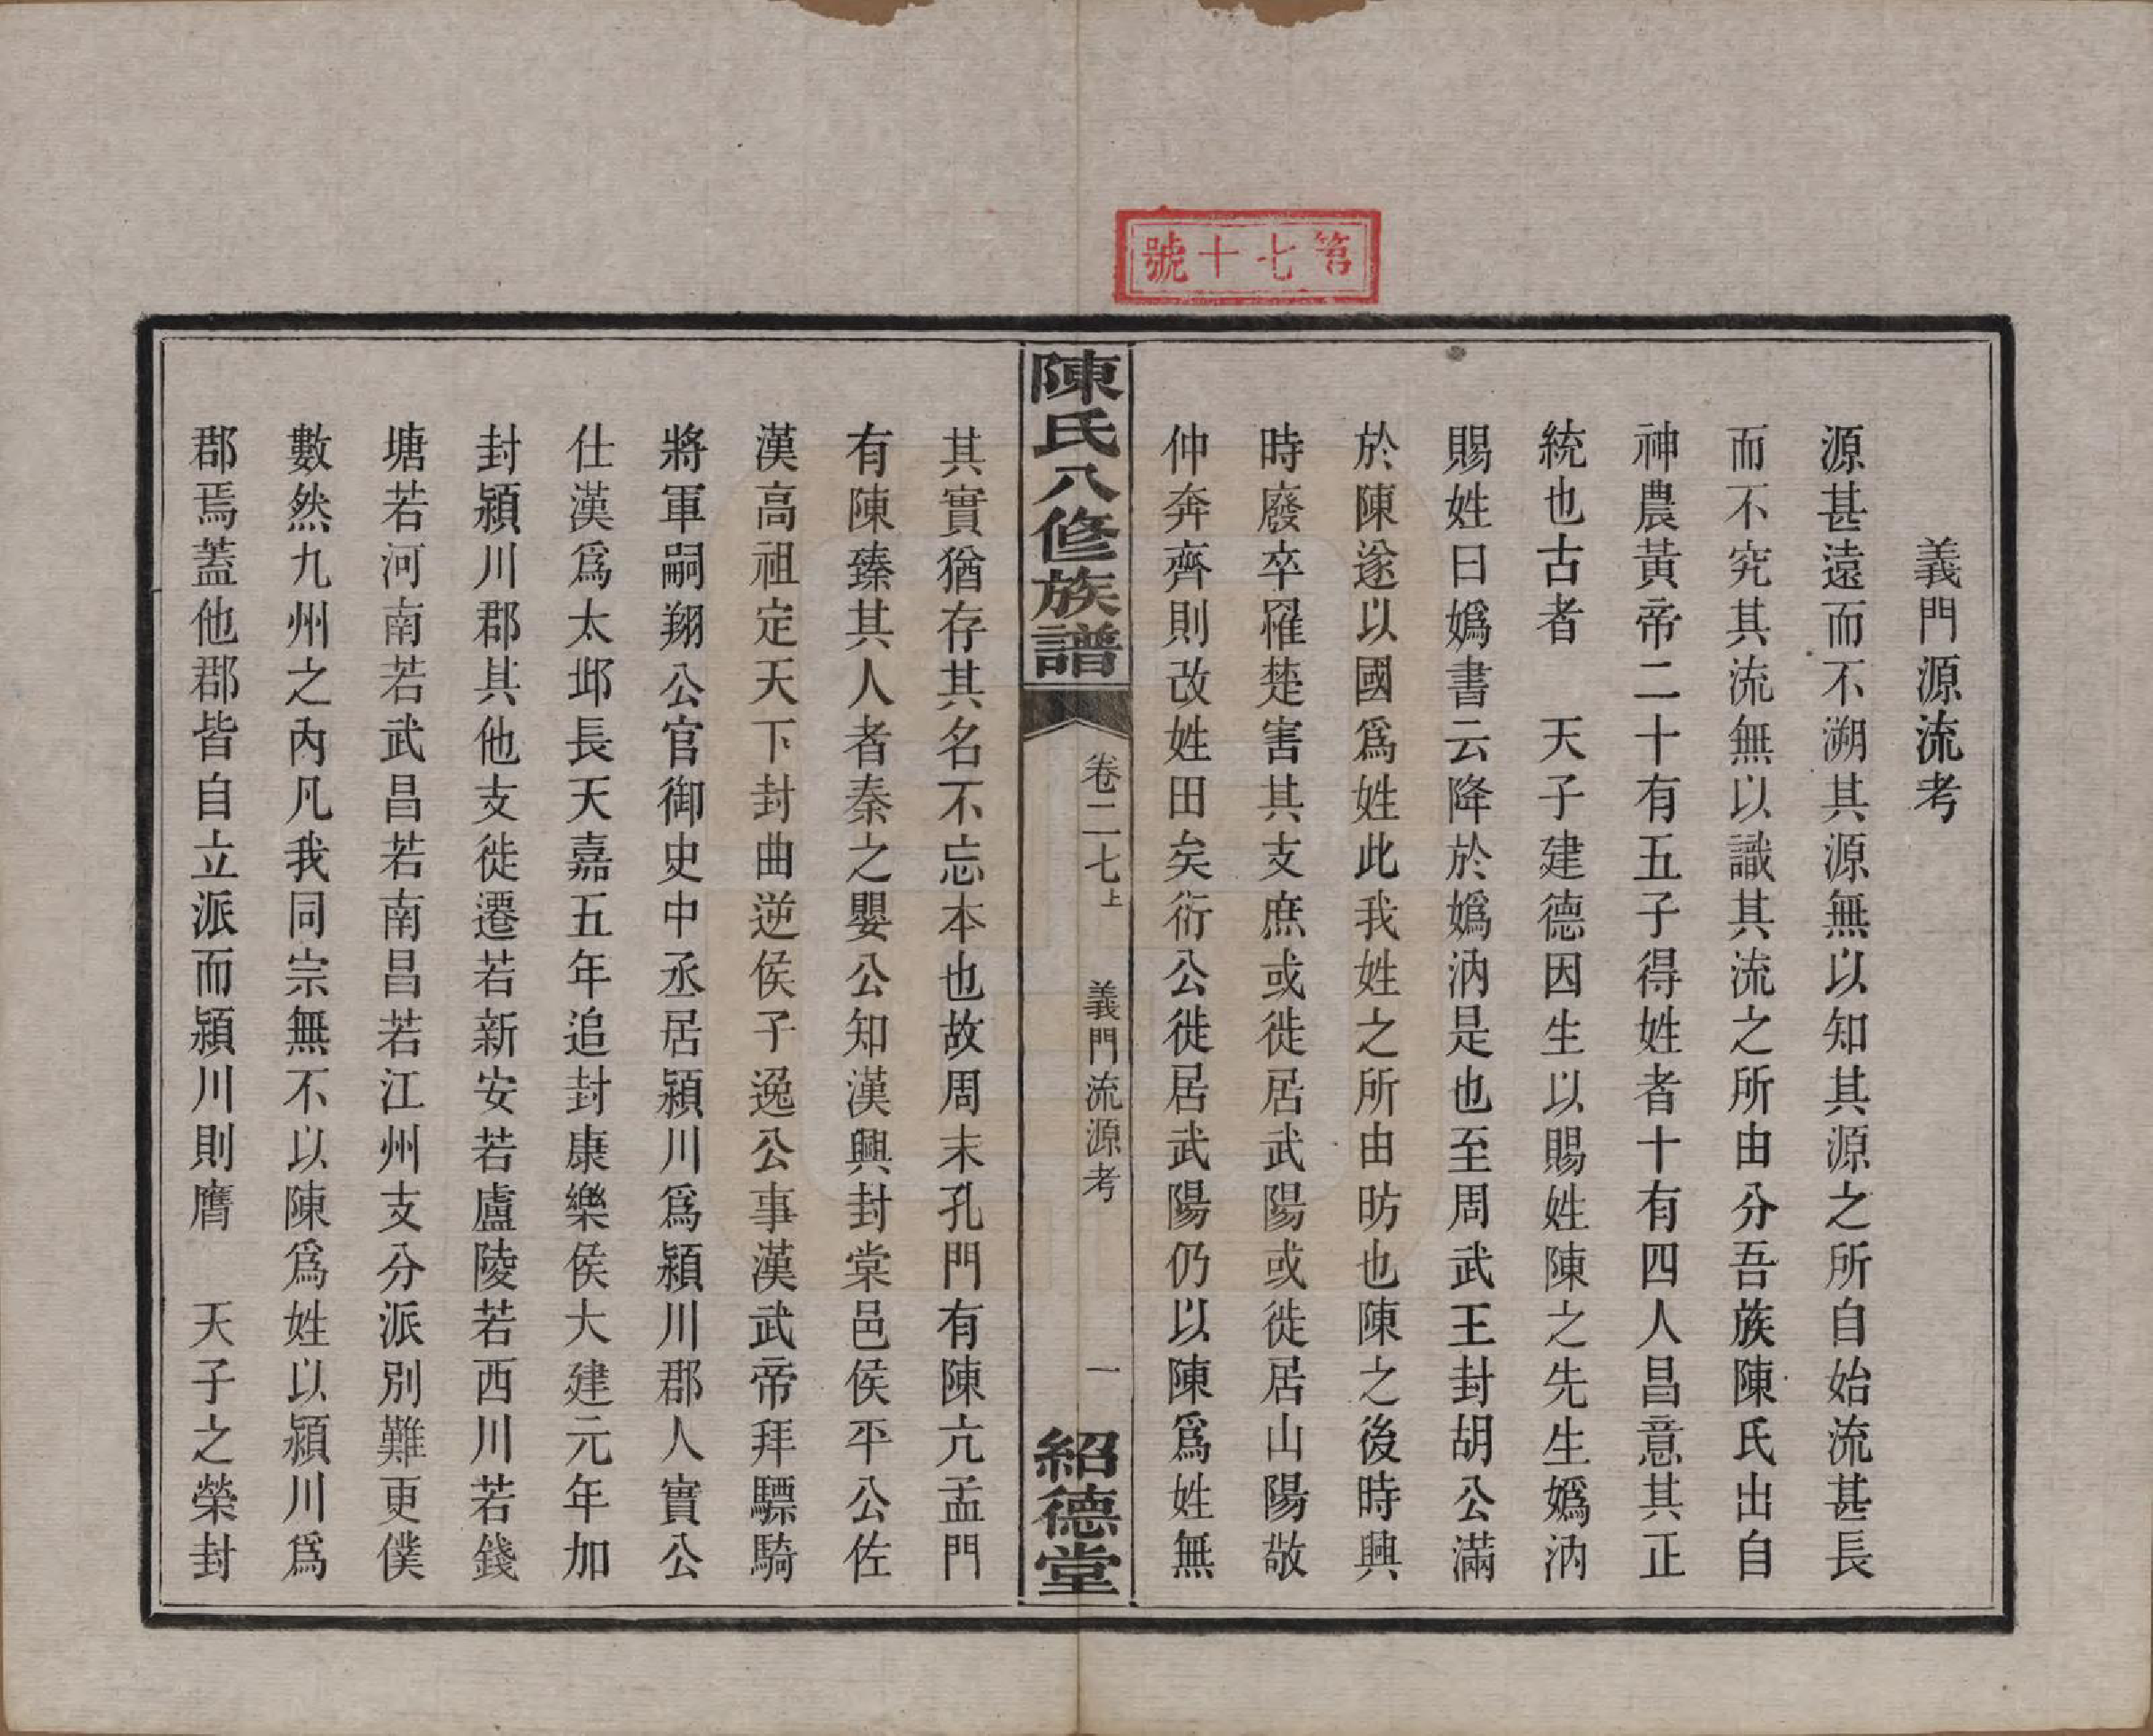 第七十號
義門源流考
源甚遠而不溯其源無以知其源之所自始流甚長
而不究其流無以識其流之所由分吾族陳氏出自
神農黃帝二十有五子得姓者十有四人昌意其正
統也古者　天子建德因生以賜姓陳之先生嬀汭
賜姓曰嬀書云降於嬀汭是也至周武王封胡公滿
於陳遂以國爲姓此我姓之所由昉也陳之後時興
時廢卒罹楚害其支庶或徙居武陽或徙居山陽敬
仲奔齊則改姓田矣衍公徙居武陽仍以陳爲姓無
陳氏八修族譜
卷二七上
義門流源考
一
紹德堂
其實猶存其名不忘本也故周末孔門有陳亢孟門
有陳臻其人者秦之嬰公知漢興封棠邑侯平公佐
漢高祖定天下封曲逆侯子逸公事漢武帝拜驃騎
將軍嗣翔公官御史中丞居潁川爲潁川郡人實公
仕漢爲太邱長天嘉五年追封康樂侯大建元年加
封潁川郡其他支徙遷若新安若盧陵若西川若錢
塘若河南若武昌若南昌若江州支分派別難更僕
數然九州之內凡我同宗無不以陳爲姓以潁川爲
郡焉蓋他郡皆自立派而潁川則膺　天子之榮封